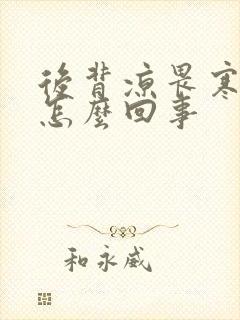 後背凉畏寒
怎麼回事
和永威